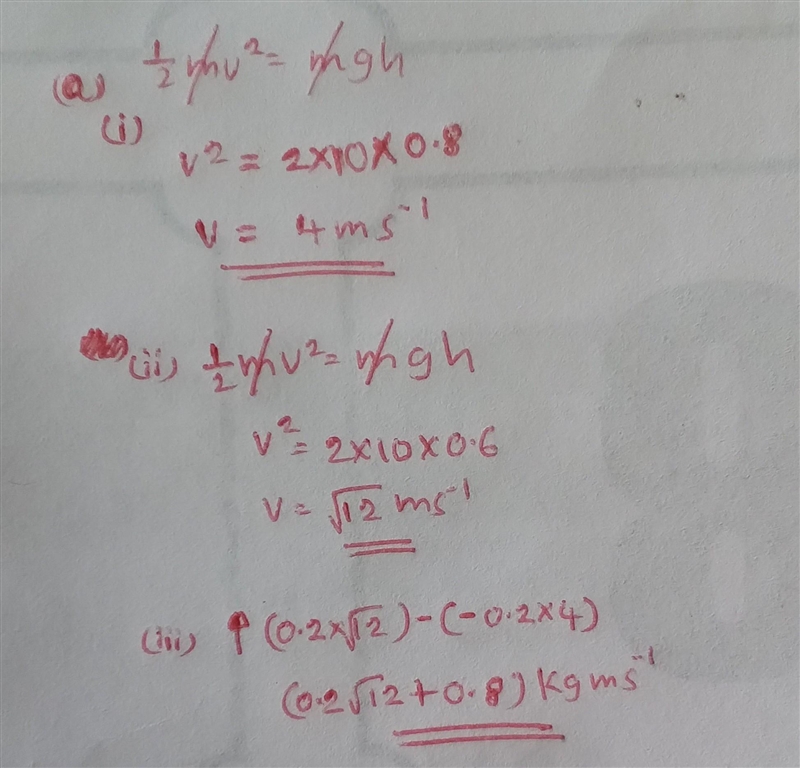 (a) ½mv² = mgh
(i)
v² = 2×10×0.8
v = 4ms⁻¹
(ii) ½mv² = mgh
v² = 2×10×0.6
v = √12 ms⁻¹
(iii) ↑ (0.2×√12)-(-0.2×4)
(0.2√12+0.8) Kgms⁻¹